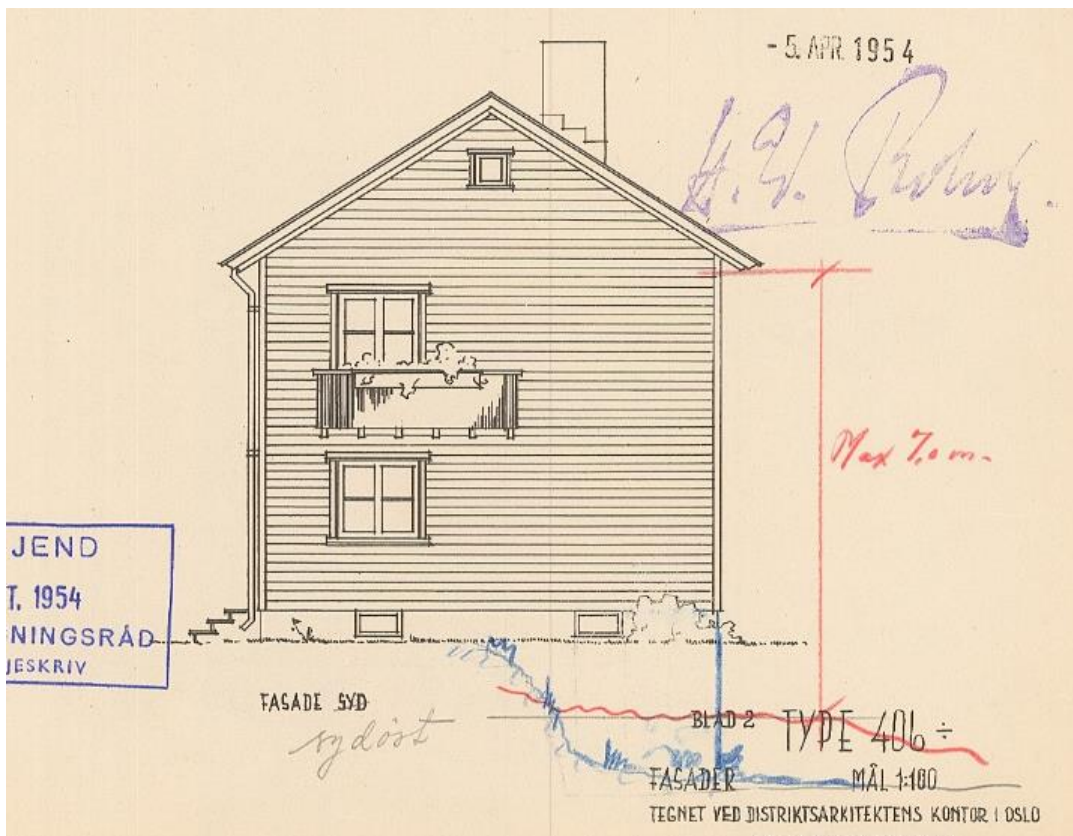 - 5. APR. 1954
H. W.
Max 7,0 m.
JEND
T. 1954
NINGSRÅD
JESKRIV
FASADE SYD
sydöst
BLAD 2 TYPE 406 ÷
FASADER MÅL 1:100
TEGNET VED DISTRIKTSARKITEKTENS KONTOR I OSLO